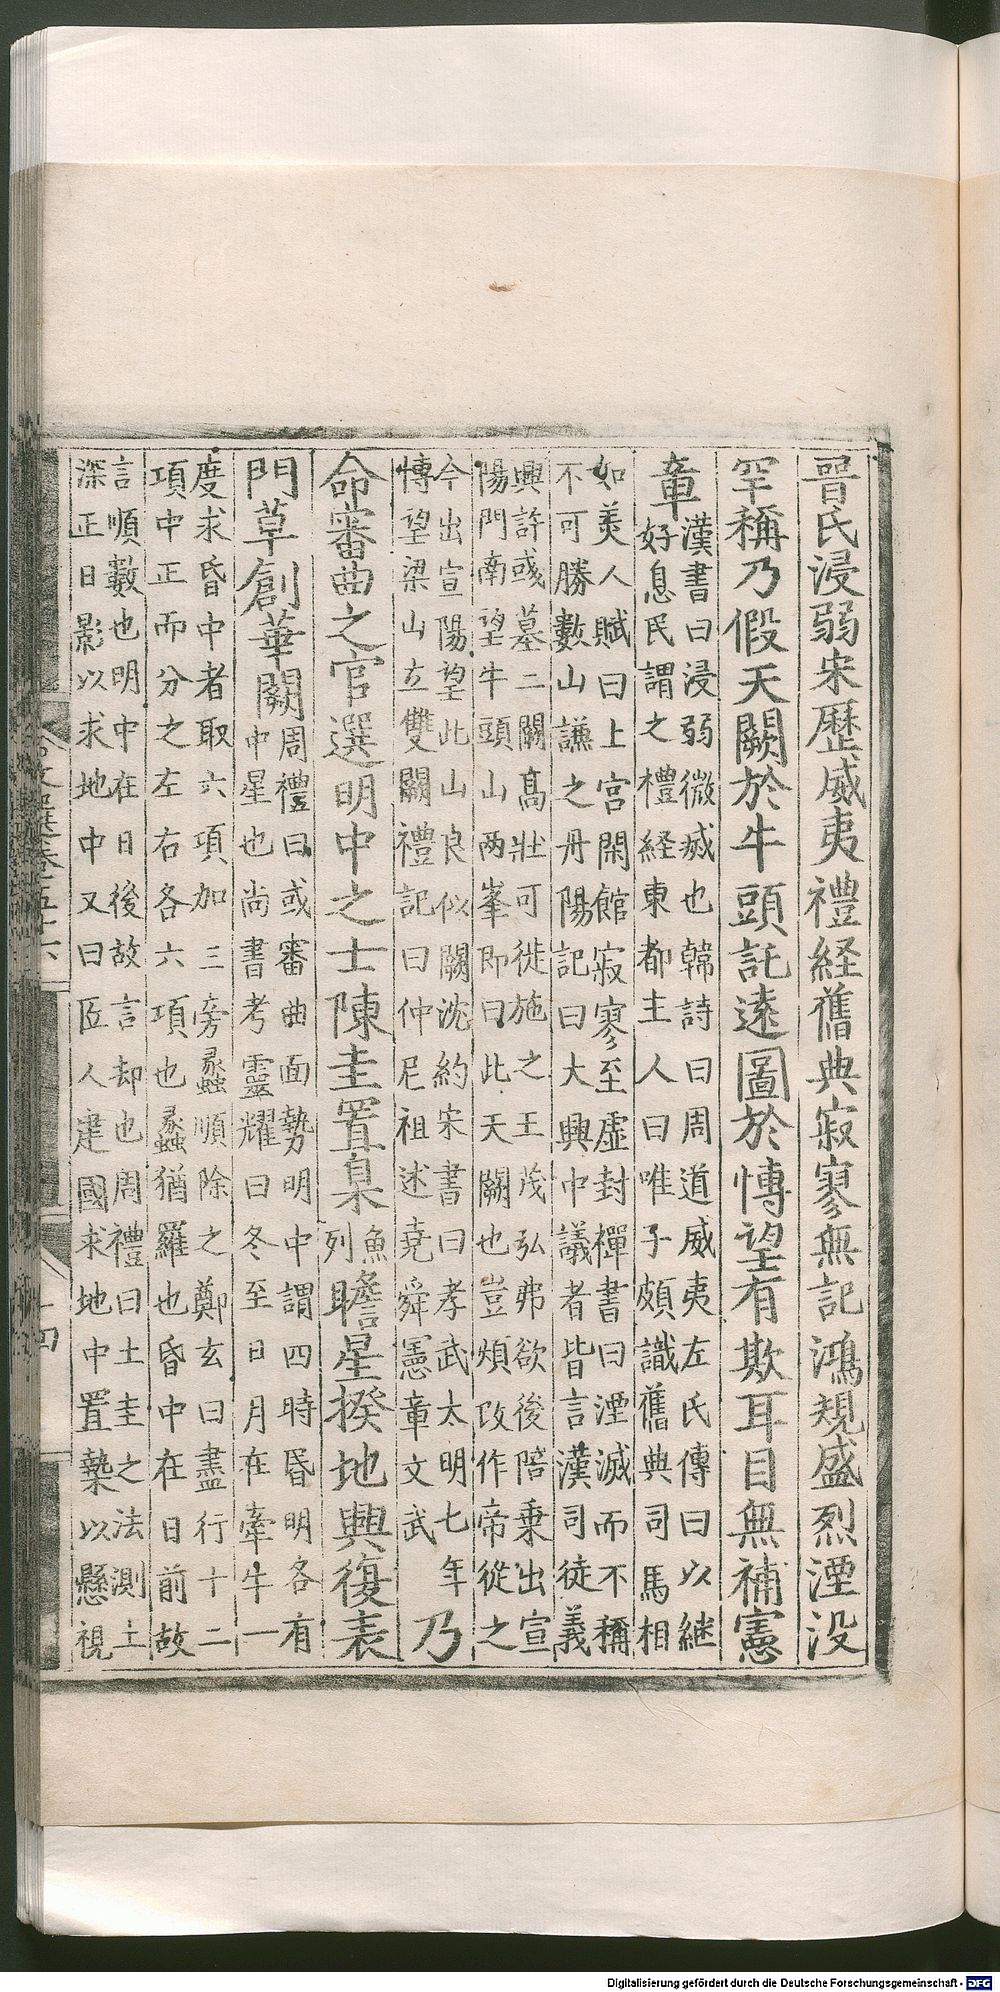 晉氏浸弱宋歷威夷禮経舊典寂寥無記鴻規盛烈湮没
罕稱乃假天闕於牛頭託遠圖於博望有欺耳目無補憲
章
漢書曰浸弱微㓕也韓詩曰周道威夷左氏傳曰以継
好息民謂之禮経東都主人曰唯子頗識舊典司馬相
如美人賦曰上宮閑館寂寥至虛封禪書曰湮滅而不稱
不可勝數山謙之丹陽記曰大興中議者皆言漢司徒義
興許彧墓二闕髙壯可徙施之王茂弘弗欲後陪乗出宣
陽門南望牛頭山两峯即曰此天闕也豈煩攺作帝從之
今出宣陽望此山良似闕沈約宋書曰孝武太明七年
博望梁山立雙闕禮記曰仲尼祖述堯舜憲章文武
乃
命審曲之官選明中之士陳圭置臬
魚
列
瞻星揆地興復表
門草創華闕
周禮曰或審曲面勢明中謂四時昏明各有
中星也尚書考靈耀曰冬至日月在牽牛一
度求昏中者取六項加三旁蠡順除之鄭玄曰盡行十二
項中正而分之左右各六項也蠡猶羅也昏中在日前故
言順數也明中在日後故言却也周禮曰土圭之法測土
深正日影以求地中又曰匠人建國求地中置槷以懸視
文選卷五十六
十四
Digitalisierung gefördert durch die Deutsche Forschungsgemeinschaft - DFG